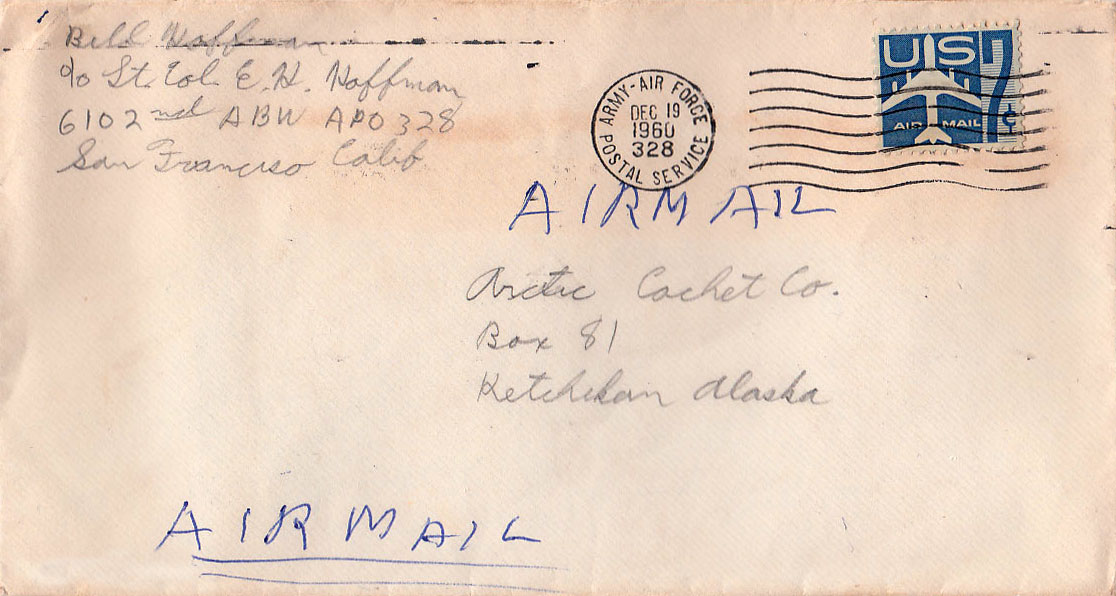 Bill Hoffman
c/o Lt. Col. E. H. Hoffman
6102nd ABW APO 328
San Francisco Calif
ARMY-AIR FORCE
DEC 19
1960
328
POSTAL SERVICE
US 7¢
AIR MAIL
AIRMAIL
Arctic Cachet Co.
Box 81
Ketchikan Alaska
AIRMAIL